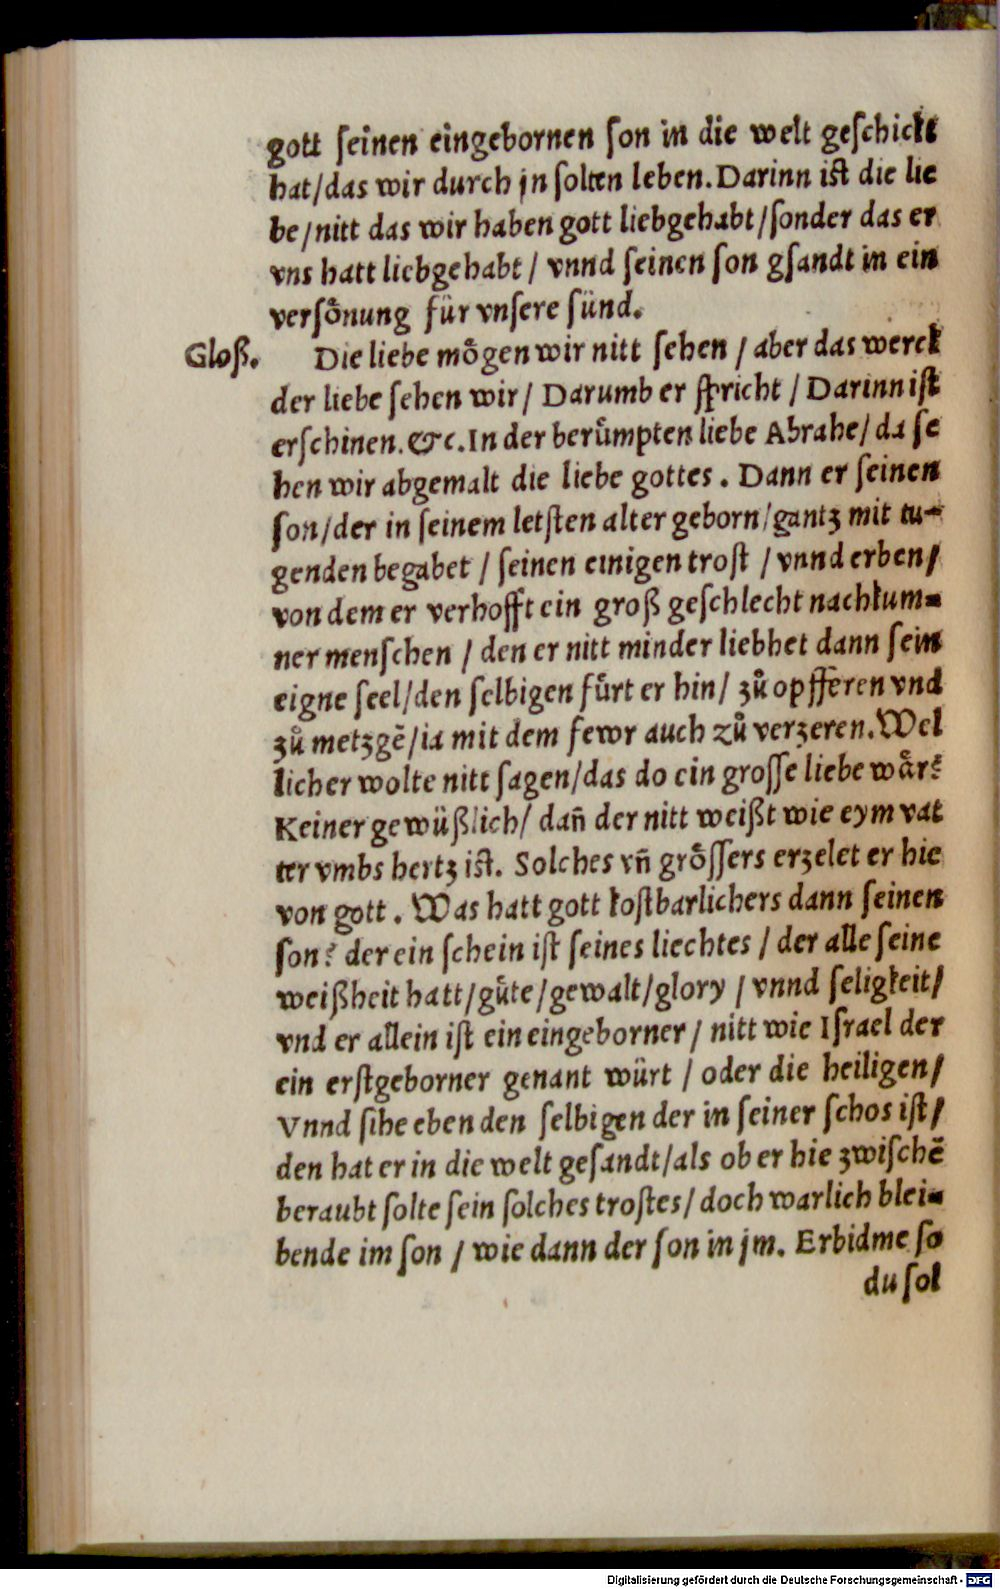 gott seinen eingebornen son in die welt geschickt
hat/das wir durch jn solten leben. Darinn ist die lie
be/nitt das wir haben gott liebgehabt/sonder das er
vns hatt liebgehabt / vnnd seinen son gsandt in ein
versoͤnung für vnsere sünd.
Gloß. Die liebe moͤgen wir nitt sehen / aber das werck
der liebe sehen wir/ Darumb er spricht / Darinn ist
erschinen. &c. In der beruͤmpten liebe Abrahe/ da se
hen wir abgemalt die liebe gottes . Dann er seinen
son/der in seinem letsten alter geborn/gantz mit tu-
genden begabet / seinen einigen trost / vnnd erben/
von dem er verhofft ein groß geschlecht nachkum-
ner menschen / den er nitt minder liebhet dann sein
eigne seel/den selbigen fuͤrt er hin/ zuͦ opfferen vnd
zuͦ metzgē/ia mit dem fewr auch zuͦ verzeren. Wel
licher wolte nitt sagen/das do ein grosse liebe waͤr?
Keiner gewüßlich/ dañ der nitt weißt wie eym vat
ter vmbs hertz ist. Solches vñ groͤssers erzelet er hie
von gott . Was hatt gott kostbarlichers dann seinen
son? der ein schein ist seines liechtes / der alle seine
weißheit hatt/guͤte/gewalt/glory / vnnd seligkeit/
vnd er allein ist ein eingeborner / nitt wie Israel der
ein erstgeborner genant würt / oder die heiligen/
Vnnd sihe eben den selbigen der in seiner schos ist/
den hat er in die welt gesandt/als ob er hie zwischē
beraubt solte sein solches trostes/ doch warlich blei-
bende im son / wie dann der son in jm. Erbidme so
du sol
Digitalisierung gefördert durch die Deutsche Forschungsgemeinschaft - DFG